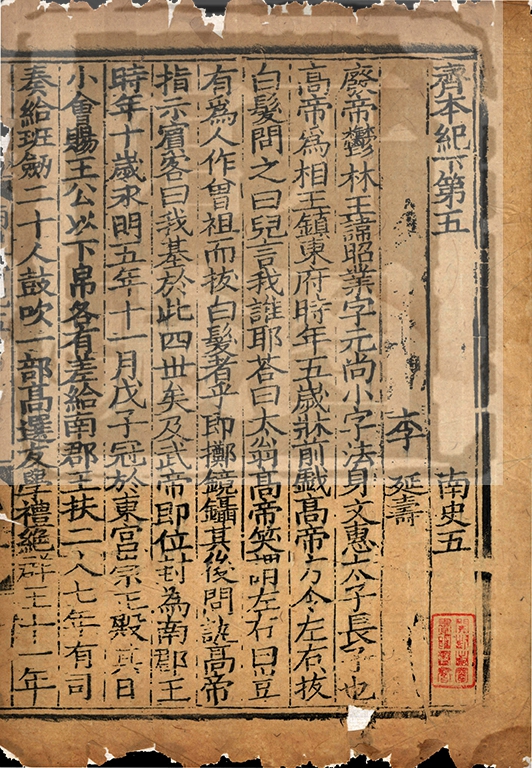 齊本紀下第五　南史五
李　延壽
廢帝鬱林王諱昭業字元尚小字法身文惠太子長子也
高帝爲相王鎮東府時年五歲牀前戲高帝方令左右拔
白髮問之曰兒言我誰耶荅曰太翁高帝笑謂左右曰豈
有爲人作曾祖而拔白髮者乎即擲鏡鑷其後問訊高帝
指示賓客曰我基於此四世矣及武帝即位封爲南郡王
時年十歲永明五年十一月戊子冠於東宮宗正殿其日
小會賜王公以下帛各有差給南郡王扶二人七年有司
奏給班劒二十人鼓吹一部高選友學禮絕群王十一年